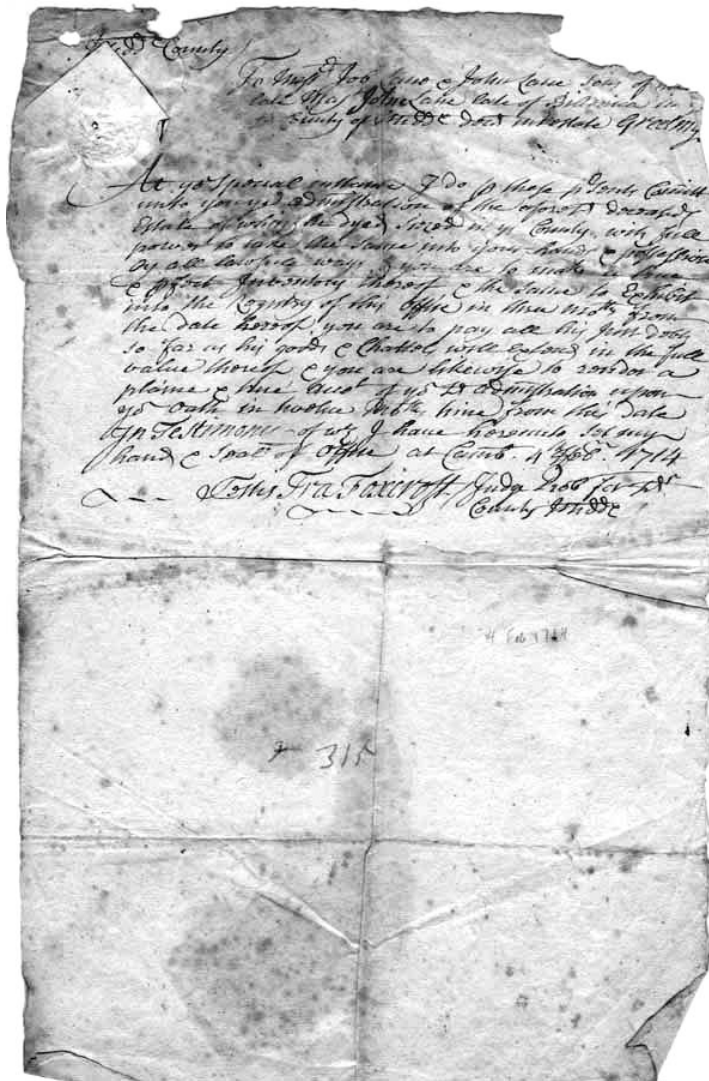 Midd County
To Messrs Job Lane & John Lane sons of
late Majr John Lane late of Billerica in
ye County of Midd decd intestate Greeting
At yor Special instance I do p these psents Comitt
unto you ye administration of the aforesd deceaseds
Estate of which he dyed Siezed in ye County, with full
power to take the same into your hands & possession
by all lawfull ways, you are to make a true
& Inventory thereof & the same to Exhibit
into the Registry of this office in three moths from
the date hereof, you are to pay all his just debts
so far as his goods & Chattels will extend in the full
value thereof & you are likewise to render a
plaine & true Acct of yor sd administration upon
yor oath in twelve moths time from this date
In Testimony of wch I have hereunto set my
hand & seal of office at Camb. 4 Feb. 1714
Fra Foxcroft Judge Prob for sd
County Midd
4 Feb 1714
315